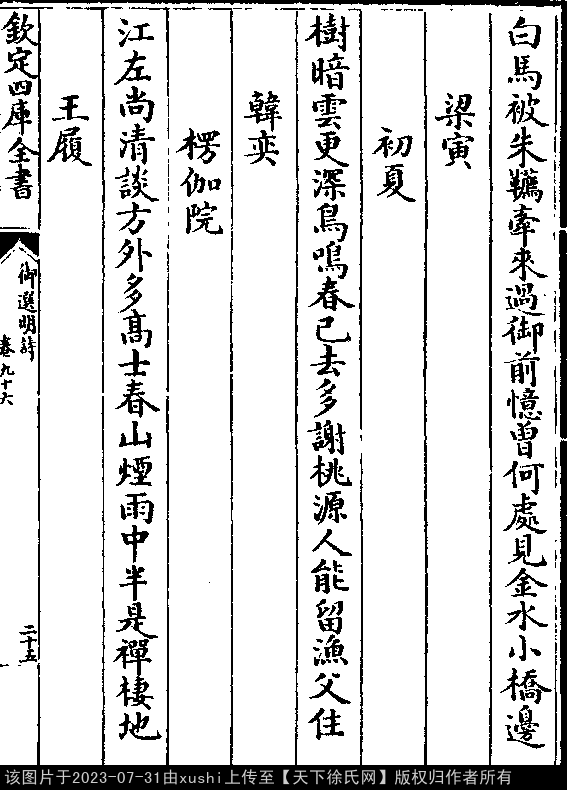 白馬被朱韉牽來過御前憶曽何處見金水小橋邊
梁寅
初夏
樹暗雲更深鳥鳴春已去多謝桃源人能留漁父住
韓奕
楞伽院
江左尚清談方外多高士春山煙雨中半是禪棲地
王履
欽定四庫全書
御選明詩
卷九十六
二十五
该图片于2023-07-31由xushi上传至【天下徐氏网】版权归作者所有